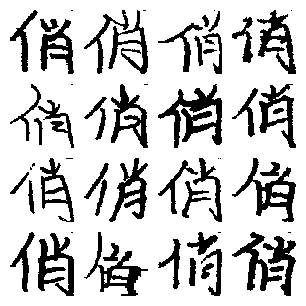 俏俏俏俏
俏俏俏俏
俏俏俏俏
俏俏俏俏